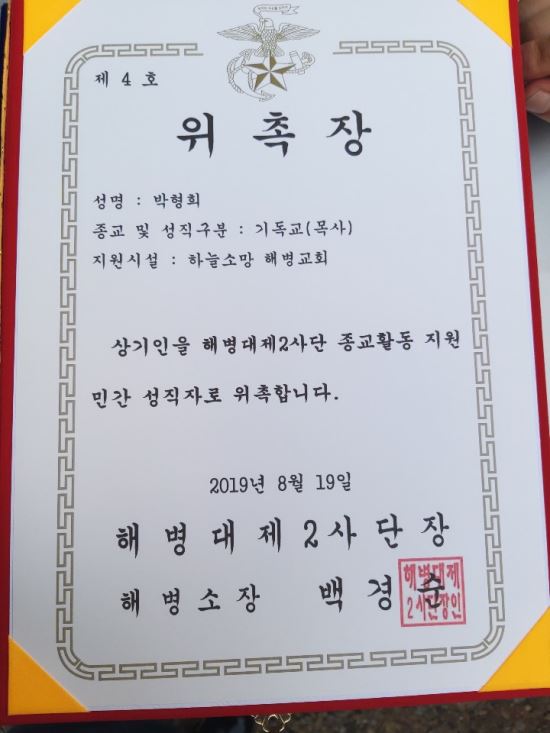 제 4 호
위 촉 장
성명 : 박형희
종교 및 성직구분 : 기독교(목사)
지원시설 : 하늘소망 해병교회
상기인을 해병대제2사단 종교활동 지원
민간 성직자로 위촉합니다.
2019년 8월 19일
해 병 대 제 2 사 단 장
해 병 소 장 백 경 순
해병대제
2사단장인